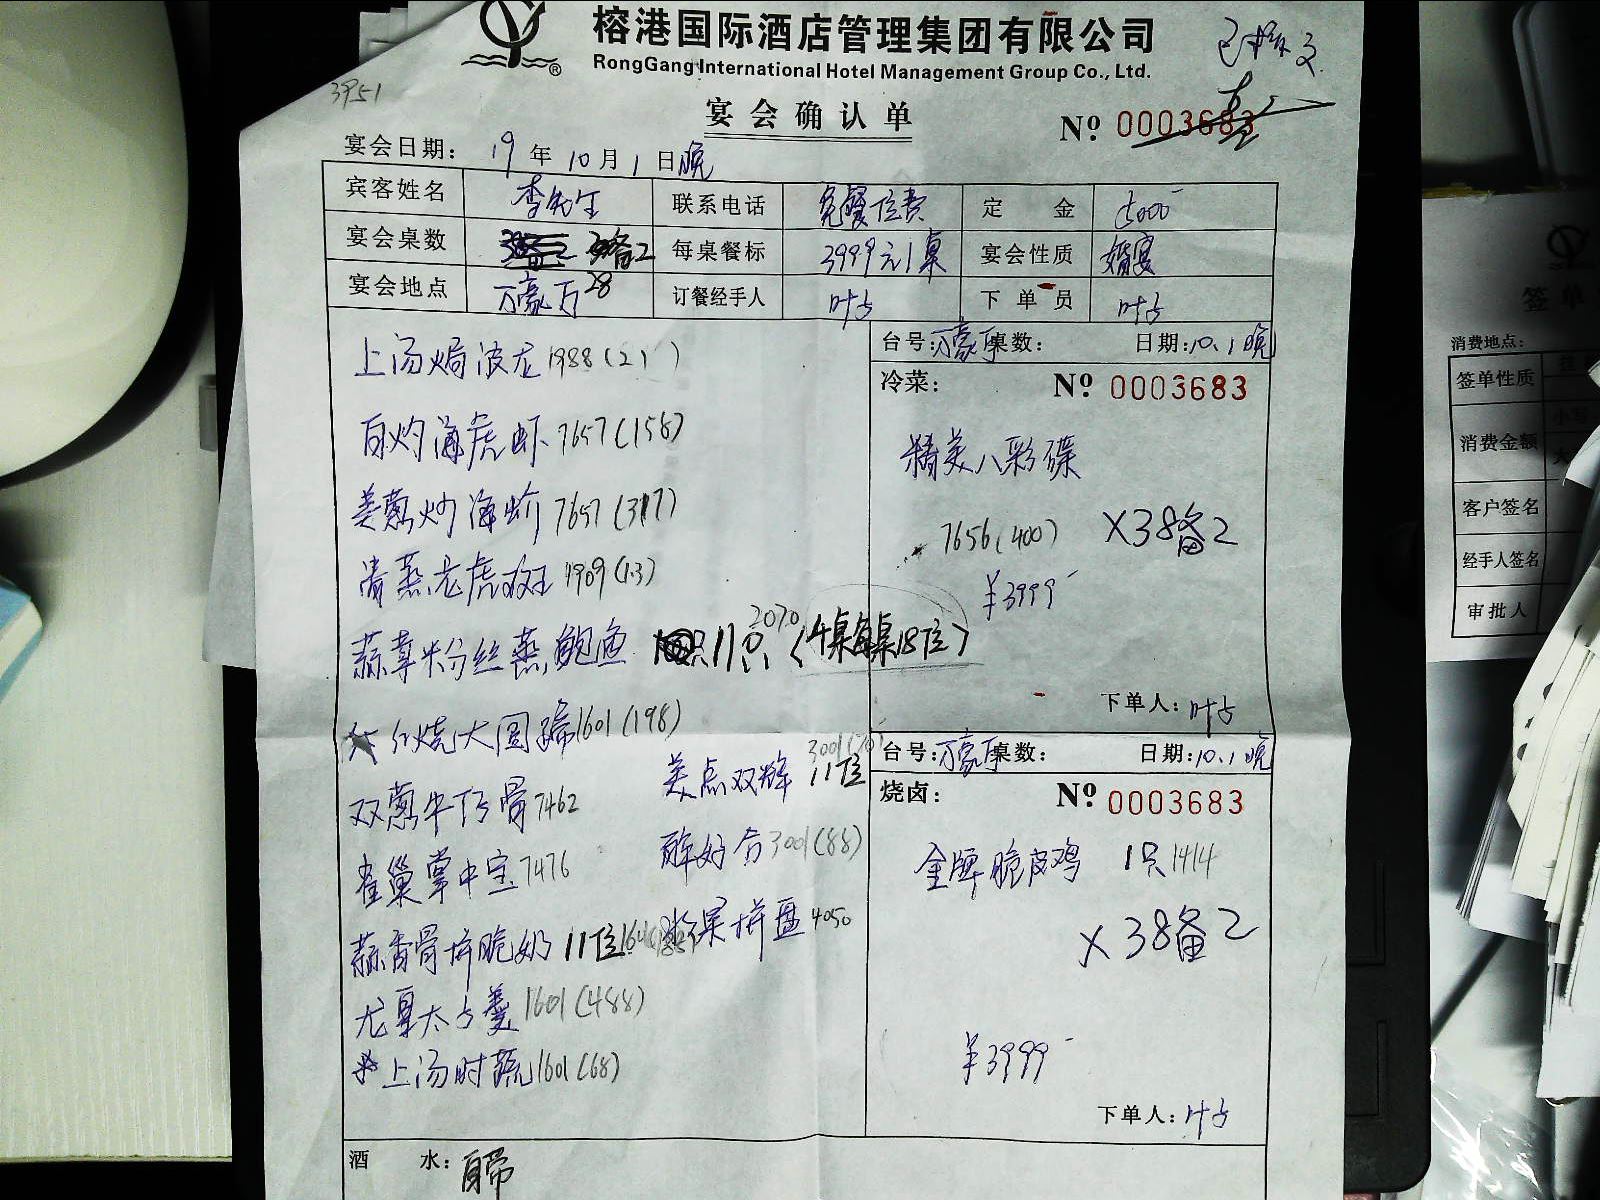 榕港国际酒店管理集团有限公司
RongGang International Hotel Management Group Co., Ltd.
3951
宴会确认单
Nº 0003683
宴会日期: 19年10月1日晚
宾客姓名 李先生 联系电话 免餐位费 定金 5000
宴会桌数 备2 每桌餐标 3999元/桌 宴会性质 婚宴
宴会地点 万豪厅 28 订餐经手人 叶占 下单员 叶占
上汤焗波龙 1988(21)
白灼海虎虾 7657(158)
姜葱炒海蚧 7657(317)
清蒸龙虎斑 1909(1.3)
蒜茸粉丝蒸鲍鱼 11只 2070 (4桌每桌18位)
红烧大圆蹄 1601(198)
双葱牛仔骨 7462
雀巢掌中宝 7476
蒜香骨拼脆奶 11位
龙皇太子羹 1601(488)
上汤时蔬 1601(68)
美点双辉 11位
酥好合 3001(88)
水果拼盘 4050
台号: 万豪厅 桌数: 日期: 10.1晚
冷菜: Nº 0003683
精美八彩碟
7656(400) X38备2
¥3999
下单人: 叶占
台号: 万豪厅 桌数: 日期: 10.1晚
烧卤: Nº 0003683
金牌脆皮鸡 1只 1414
X38备2
¥3999
下单人: 叶占
酒水: 自带
签单
消费地点:
签单性质
消费金额
小写
大
客户签名
经手人签名
审批人